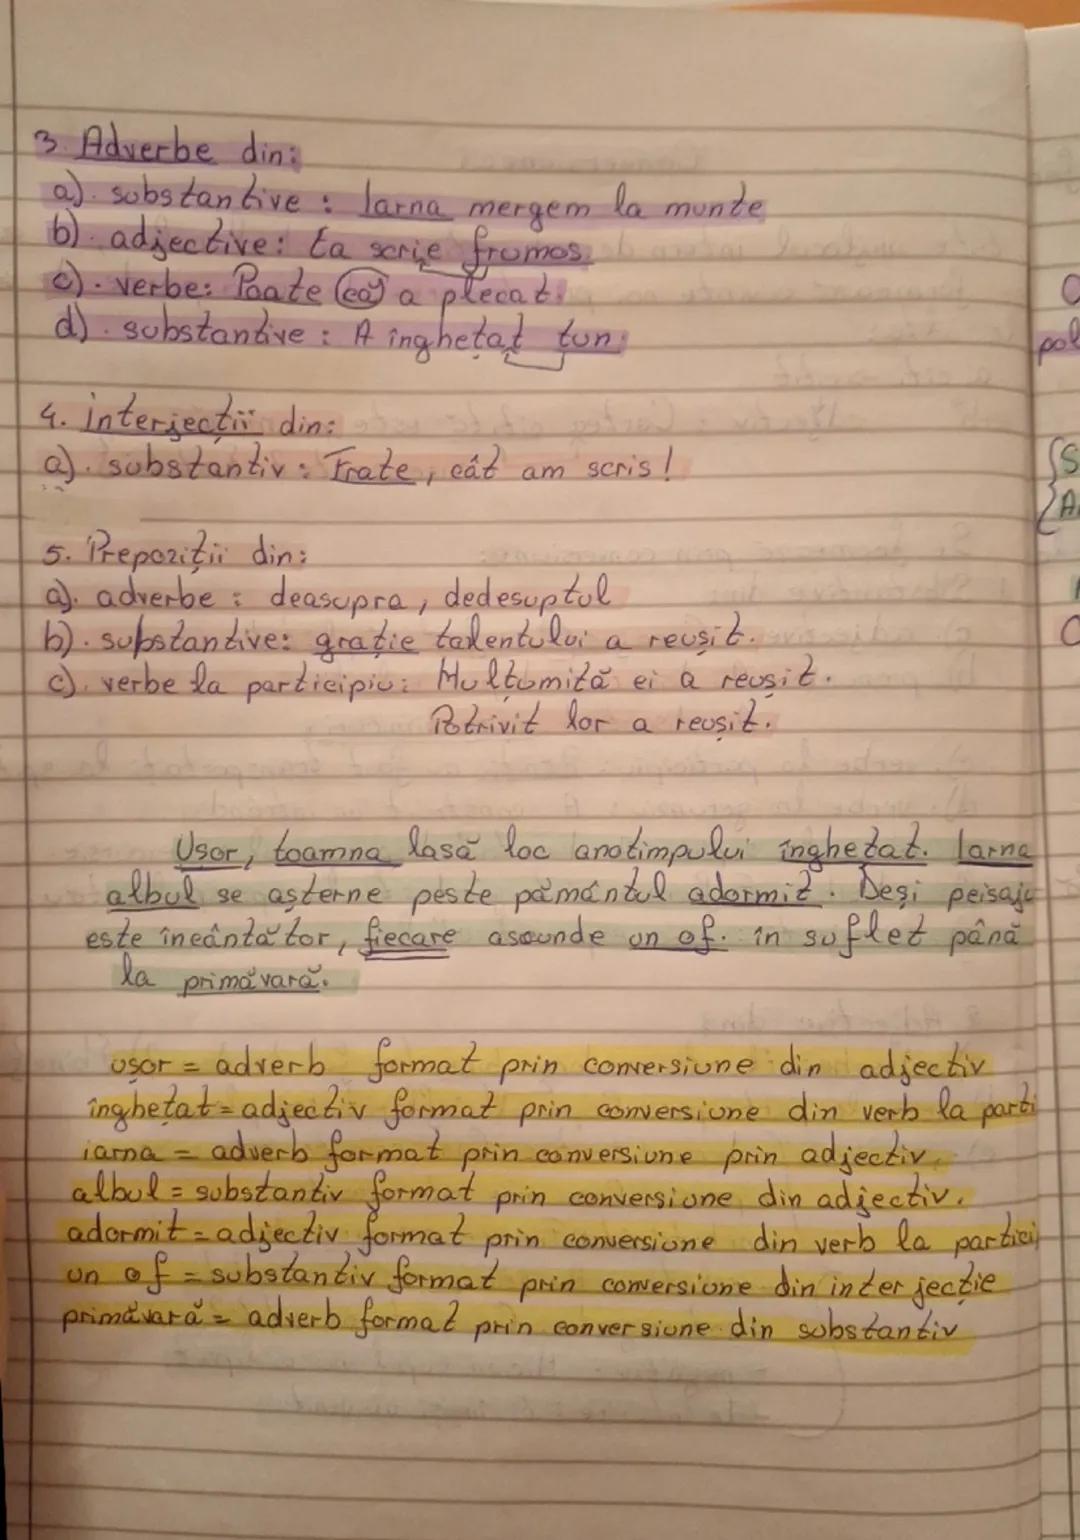 3. Adverbe din:
a). substantive : Iarna mergem la munte
b). adjective: Ea scrie frumos.
c). verbe: Poate că a plecat.
d). substantive : A înghețat tun.
4. Interjecții din:
a). substantiv : Frate, cât am scris!
5. Prepoziții din:
a). adverbe : deasupra, dedesuptul
b). substantive: grație talentului a reușit.
c). verbe la participiu: Mulțumită ei a reușit.
Potrivit lor a reușit.
Ușor, toamna lasă loc anotimpului înghețat. Iarna
albul se așterne peste pământul adormit. Deși peisaju
este încântător, fiecare ascunde un of. în suflet până
la primăvară.
ușor = adverb format prin conversiune din adjectiv
înghețat = adjectiv format prin conversiune din verb la parti
iarna = adverb format prin conversiune prin adjectiv.
albul = substantiv format prin conversiune din adjectiv.
adormit = adjectiv format prin conversiune din verb la partici
un of = substantiv format prin conversiune din interjecție
primăvară = adverb format prin conversiune din substantiv
pol